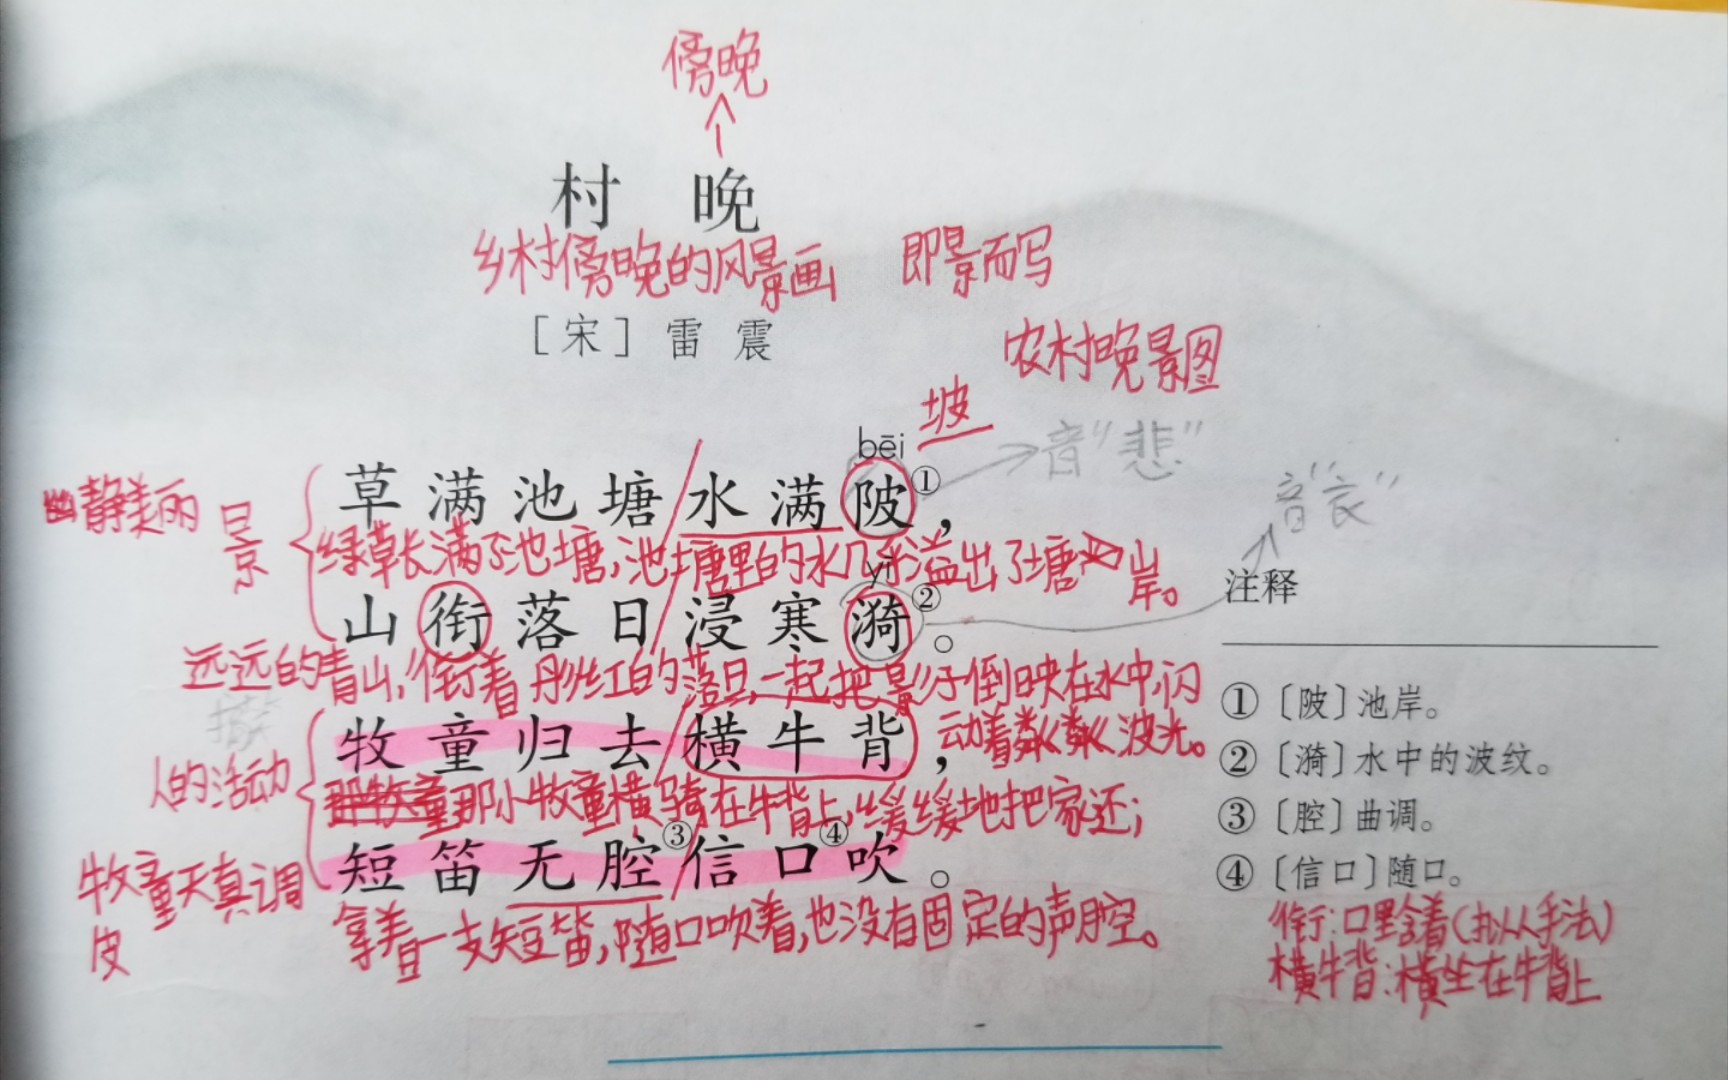 傍晚
村 晚
乡村傍晚的风景画 即景而写
［宋］雷 震
农村晚景图
坡
bēi
音“悲”
草满池塘水满陂①，
幽静美丽
景
音“衣”
绿草长满了池塘，池塘里的水几乎溢出了塘岸。
yī
山衔落日浸寒漪②。
远远的青山，衔着彤红的落日，一起把影子倒映在水中，闪
动着粼粼波光。
牧童归去横牛背，
人的活动
那小牧童横骑在牛背上，缓缓地把家还；
短笛无腔③信口④吹。
牧童天真调
皮
拿着一支短笛，随口吹着，也没有固定的声腔。
注释
①［陂］池岸。
②［漪］水中的波纹。
③［腔］曲调。
④［信口］随口。
衔：口里含着（拟人手法）
横牛背：横坐在牛背上